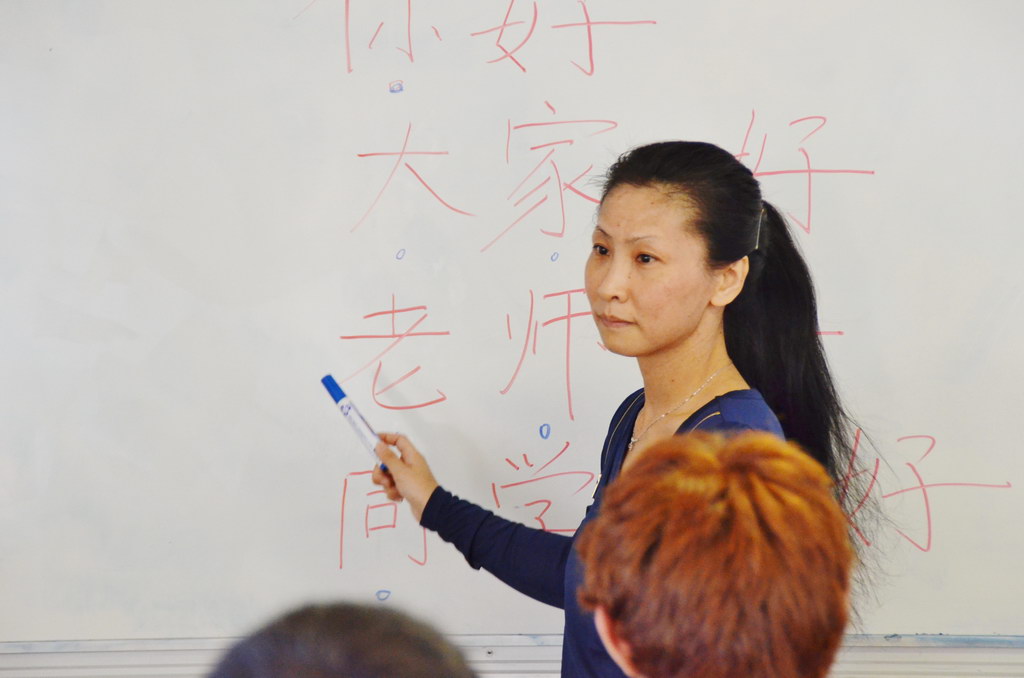 你好
大家好
老师
同学 好